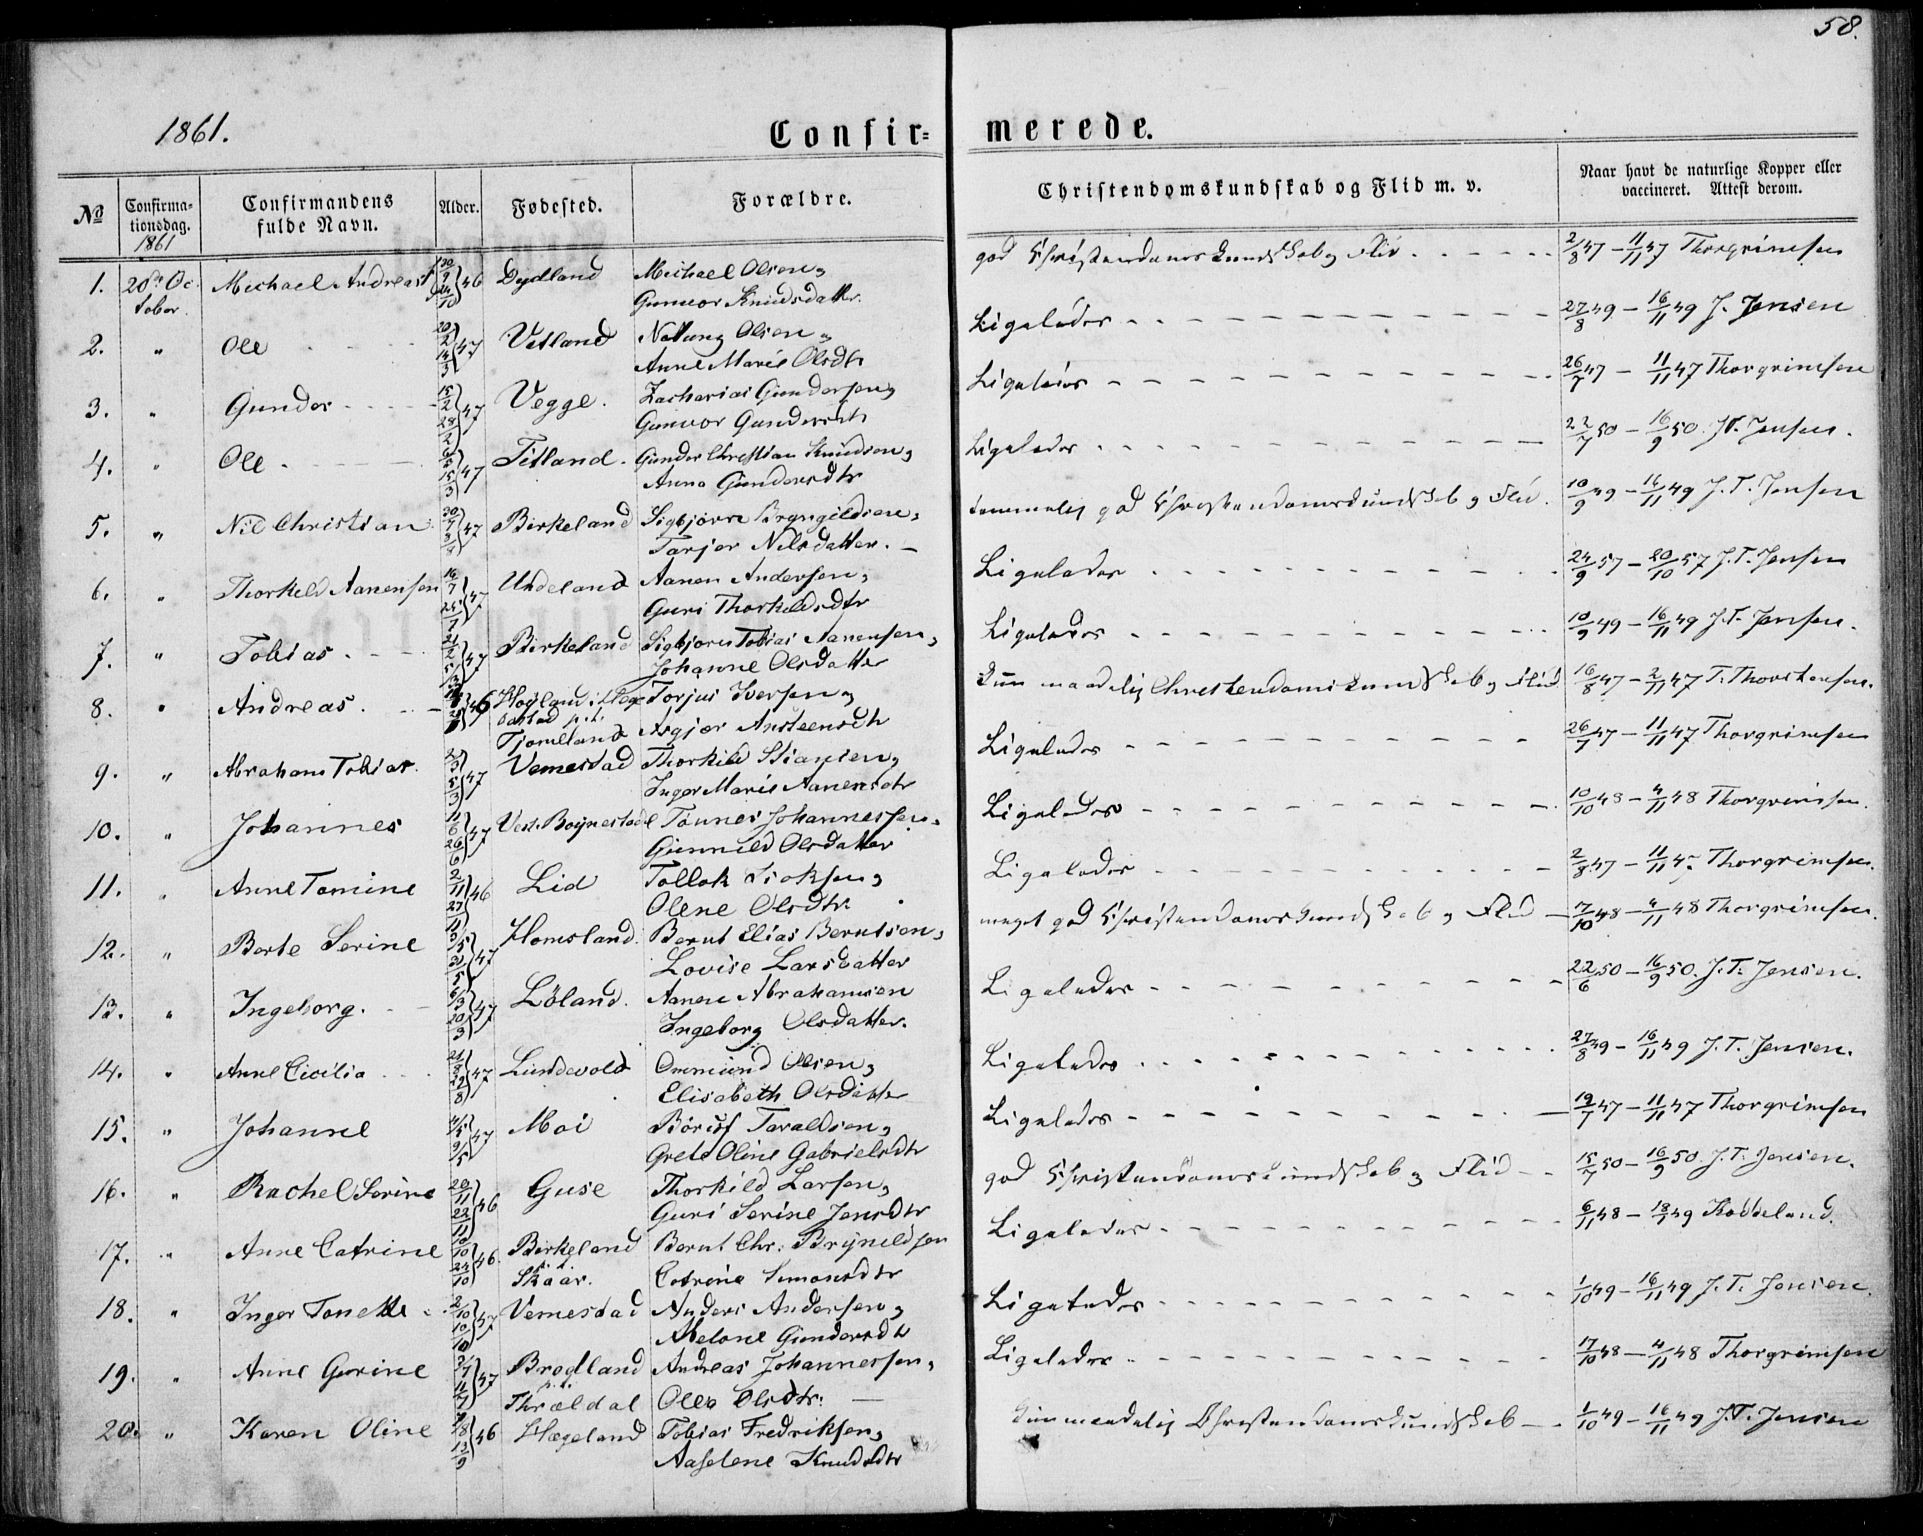 58.
1861.
Confir= merede.
No
Confirma=
tionsdag.
1861
Confirmandens
fulde Navn.
Alder.
Fødested.
Forældre.
Christendomskundskab og Flid m. v.
Naar havt de naturlige Kopper eller
vaccineret. Attest derom.
1. 20de Oc- Michael Andreas 46 Dydland Michael Olsen, god Christendomskundskab og Flid 2/8 47 – 11/11 47 Thorgrimsen
tober. Gunvor Knudsdatter.
2. " Ole 20/2 14/3 47 Vetland Netung Olsen, Ligeledes 27/8 49 – 16/11 49 J. Jensen
Anne Marie Olsdtr
3. " Gunder 15/2 28/2 47 Vegge. Zacharias Gundersen, Ligeledes 26/7 47 – 11/11 47 Thorgrimsen
Gunvor Gundersdtr
4. " Ole 15/3 47 Titland. Gunder Christian Knudsen, Ligeledes 22/7 50 – 16/9 50. J.T. Jensen.
Anna Gundersdtr
5. " Nil Christian 47 Birkeland Sigbjørn Bryngildsen, temmelig god Christendomskundskab og Flid. 10/9 49 – 16/11 49 J. T. Jensen
Tarjer Nilsdatter. –
6. " Thorkeld Aanensen 16/7 25/7 47 Undeland Aanen Andersen, Ligeledes 24/9 57 – 20/10 57 J.T. Jensen
Guri Thorkeldsdtr
7. " Tobias 21/2 47 Birkeland Sigbjørn Tobias Aanensen, Ligeledes 10/9 49 – 16/11 49 J.T. Jensen.
Johanne Olsdatter
8. " Andreas. 46 Høyland i Hege- Torjus Iversen, kun maadelig Christendomskundskab og Flid 16/8 47 – 2/11 47 T. Thorstensen.
bostad p.t. Asgjer Ansteensdtr
Tjomeland
9. " Abraham Tobias. 5/3 47 Vemestad Thorkild Stiansen, Ligeledes 26/7 47 – 11/11 47 Thorgrimsen
Inger Marie Aanensdtr
10. " Johannes 11/6 26/6 47 Vest. Bøynestad Tønnes Johannessen, Ligeledes 10/10 48 – 4/11 48 Thorgrimsen.
Gunnild Olsdatter
11. " Anne Tomine 2/11 27/11 46 Lid Tollak , Ligeledes 2/8 47 – 11/11 47 Thorgrimsen.
Olene Olsdtr.
12. " Berte Serine 3/5 30/5 47 Homsland. Bernt Elias Berntsen, meget god Christendomskundskab og Flid 7/10 48 – 4/11 48 Thorgrimsen.
Lovise Larsdatter
13. " Ingeborg. 6/3 20/3 47 Löland. Aanen Abrahamsen Ligeledes 22/6 50 – 16/9 50. J.T. Jensen.
Ingeborg Olsdatter.
14. " Anne Cicilia 21/8 29/8 47 Lundevold Ommund Olsen, Ligeledes 27/8 49 – 16/11 49 J. T. Jensen.
Elisabeth Olsdatter
15. " Johanne 4/5 9/5 47 Moi Böruf Taraldsen, Ligeledes 19/7 47 – 11/11 47 Thorgrimsen
Grete Oline Gabrielsdtr
16. " Rachel Serine 20/11 22/11 46 Guse Thorkild Larsen, god Christendomskundskab og Flid 15/7 50 – 16/9 50. J.T. Jensen.
Guri Serine Jensdtr
17. " Anne Catrine 10/10 24/10 46. Birkeland Bernt Chr. Bryneldsen Ligeledes 6/11 48 – 18/1 49 Kaddeland.
p.t. Skaar. Catrine Simonsdtr
18. " Inger Tonette 2/10 10/10 47 Vemestad Anders Andersen, Ligeledes 1/10 49 – 16/11 49 J.T. Jensen.
Abelone Gundersdtr
19. " Anne Gurine 47 Brødland Andreas Johannessen, Ligeledes 17/10 48 – 4/11 48 Thorgrimsen
p.t. Thraeldal Olea Olsdtr.
20. " Karen Oline 13/9 46 Hægeland Tobias Fredriksen, kun maadelig Christendomskundskab 1/10 49 – 16/11 49 J.T. Jensen
Aaselene Knudsdtr